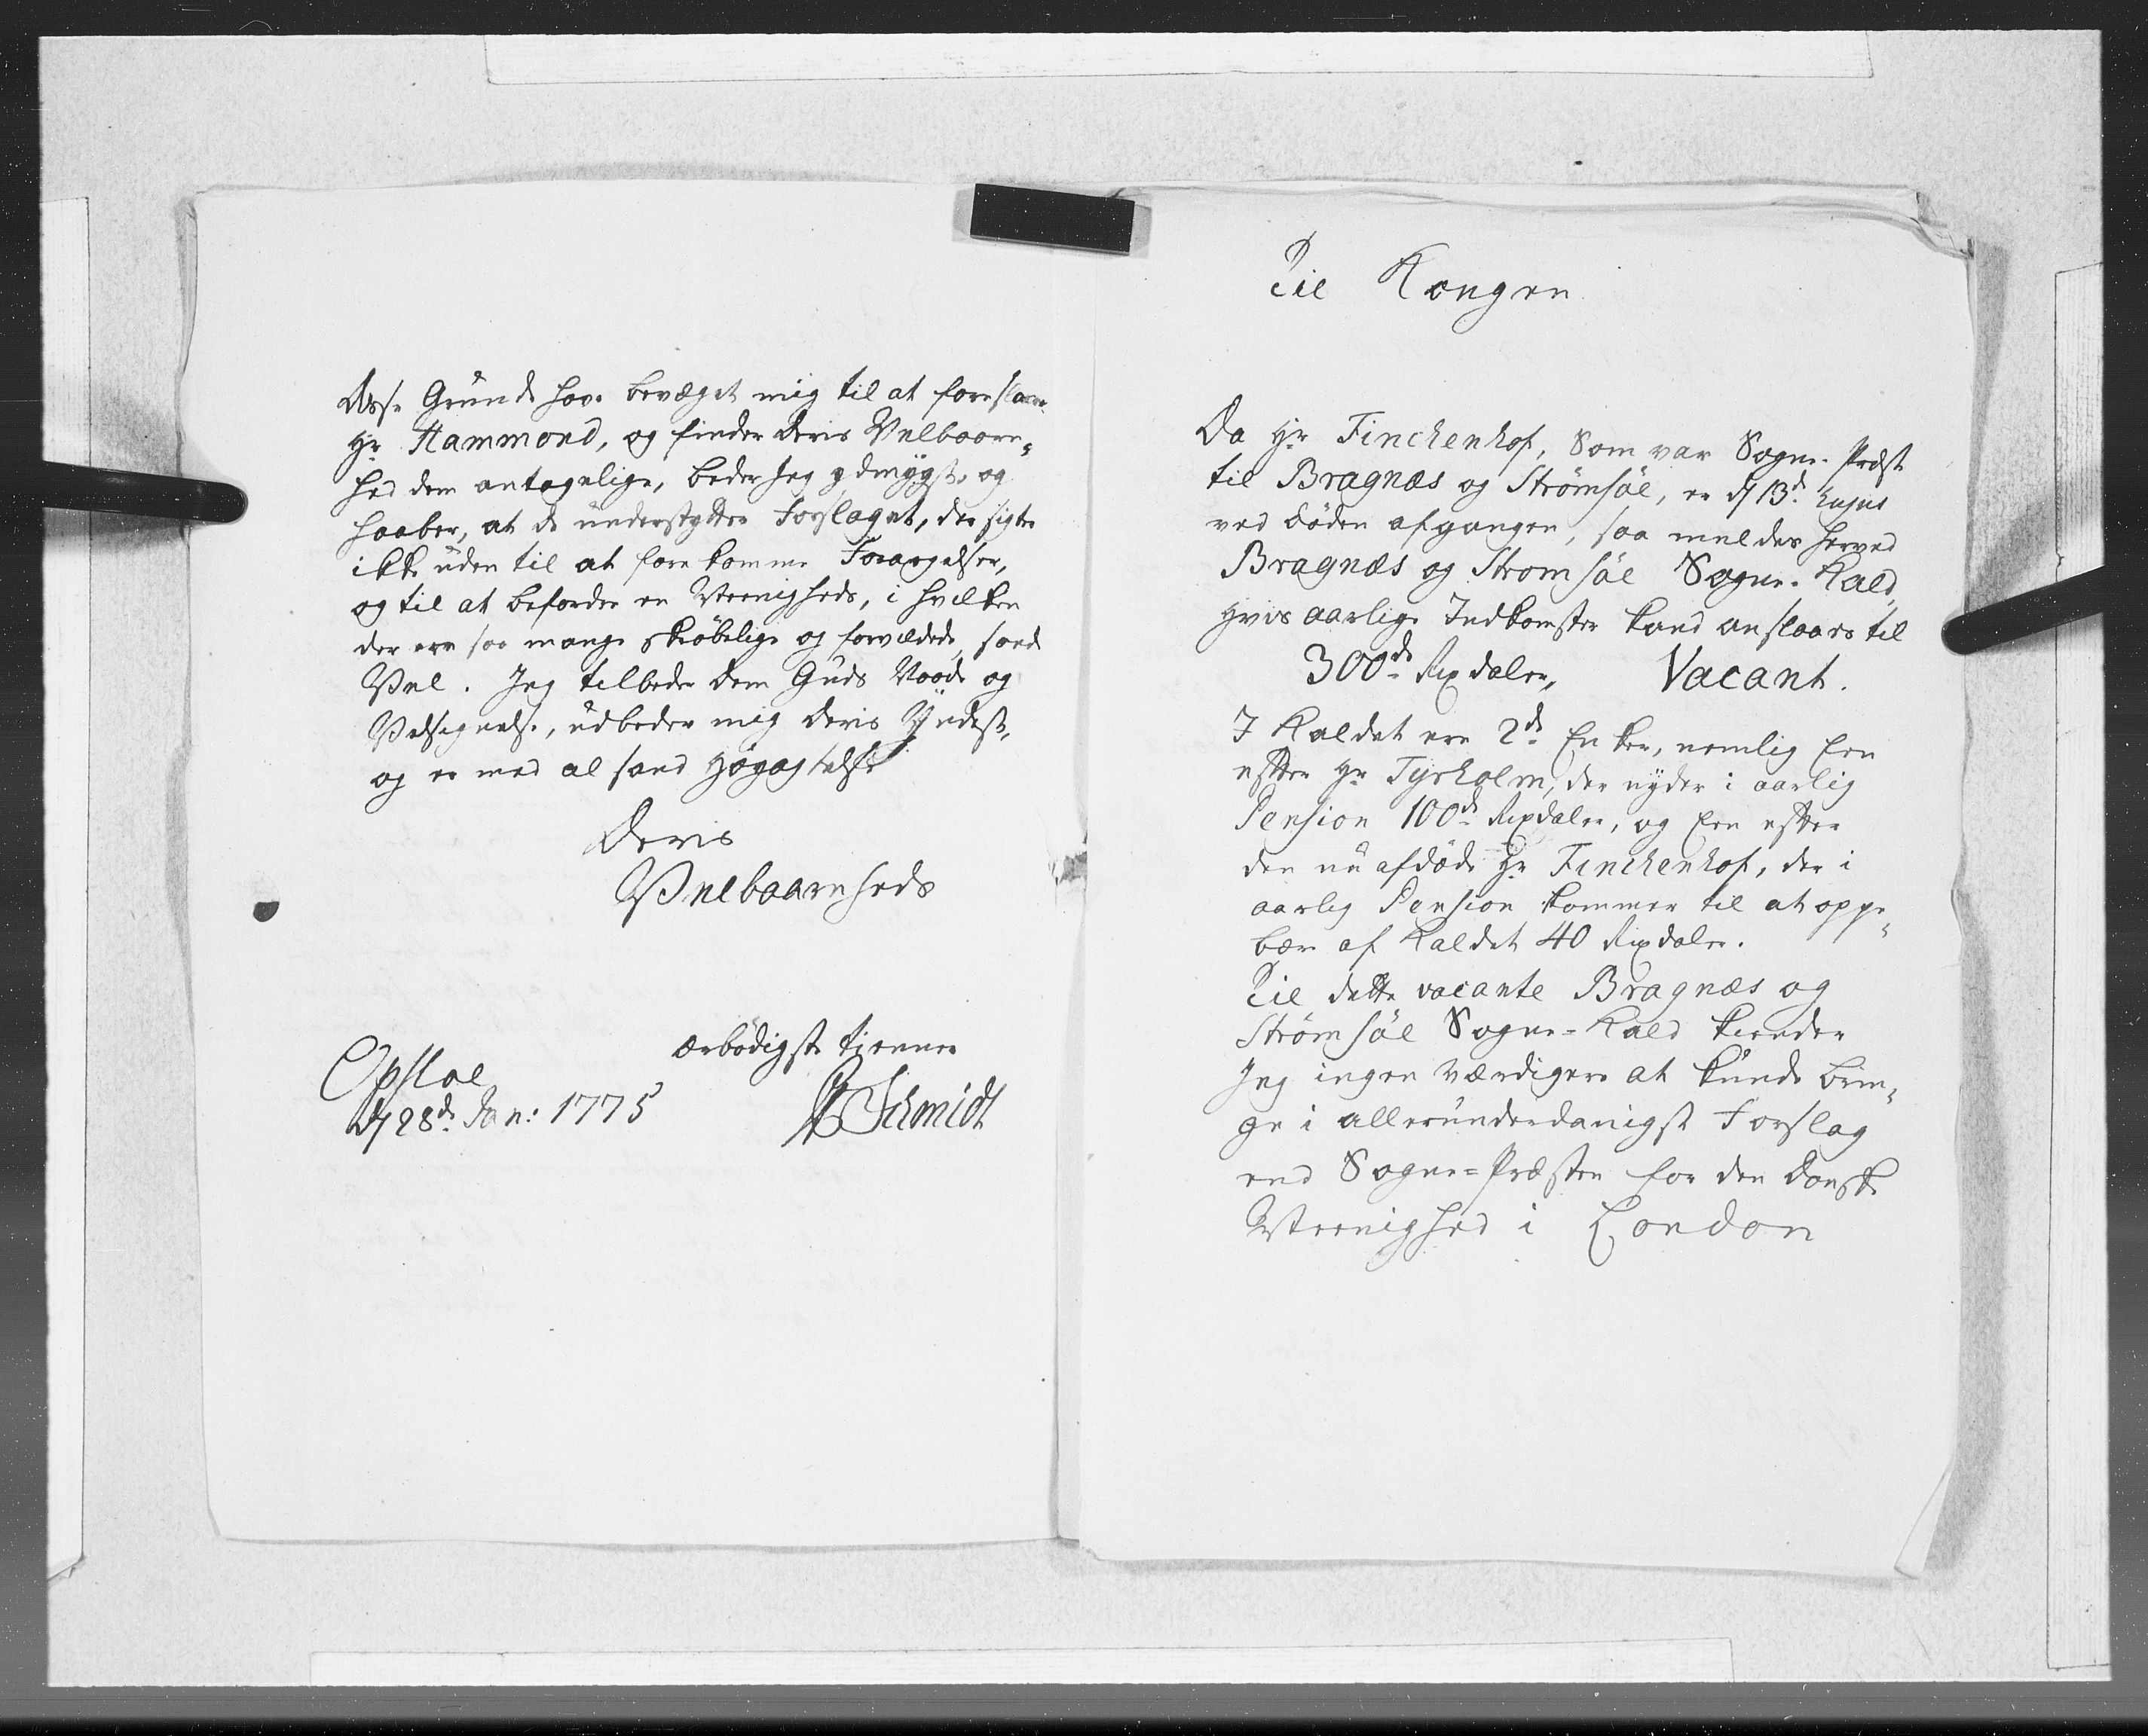 Disse Grunde have bevæget mig til at foreslaae
Hr Hammond, og finder Deris Velbaaren„
hed dem antagelige, beder Jeg ydmygst, og
haaber, at de understytter Forslaget, der sigter
ikke uden til at forekomme Forargelser,
og til at befordre en Meenigheds, i hvilken
der ere saa mange skröbelige og forvildede, sande
Vel. Jeg tilbeder Dem Guds Naade og
Velsignelse, udbeder mig Deris Yndest,
og er med al sand Högagtelse
Deris
Velbaarenheds
ærbödigste tienner
Opsloe
d 28d Jan: 1775
Schmidt
Til Kongen
Da Hr Finckenhof, Som var Sogne-Præst
til Bragnæs og Strømsöe, er d 13d hujus
ved döden afgangen, saa meldes herved
Bragnæs og Stromsöe Sogne-Kald,
hvis aarlige Indkomster kand anslaaes til
300de Rixdaler, Vacant.
I Kaldet ere 2de Enker, nemlig Een
efter Hr Tyrholm, der nyder i aarlig
Pension 100de Rixdaler, og Een efter
den nu afdöde Hr Finckenhof, der i
aarlig Pension kommer til at oppe„
bære af Kaldet 40 Rixdaler.
Til dette vacante Bragnæs og
Strömsöe Sogne-Kald kiender
Jeg ingen værdigere at kunde brin„
ge i allerunderdanigst Forslag
end Sogne-Præsten for den Danske
Meenighed i London